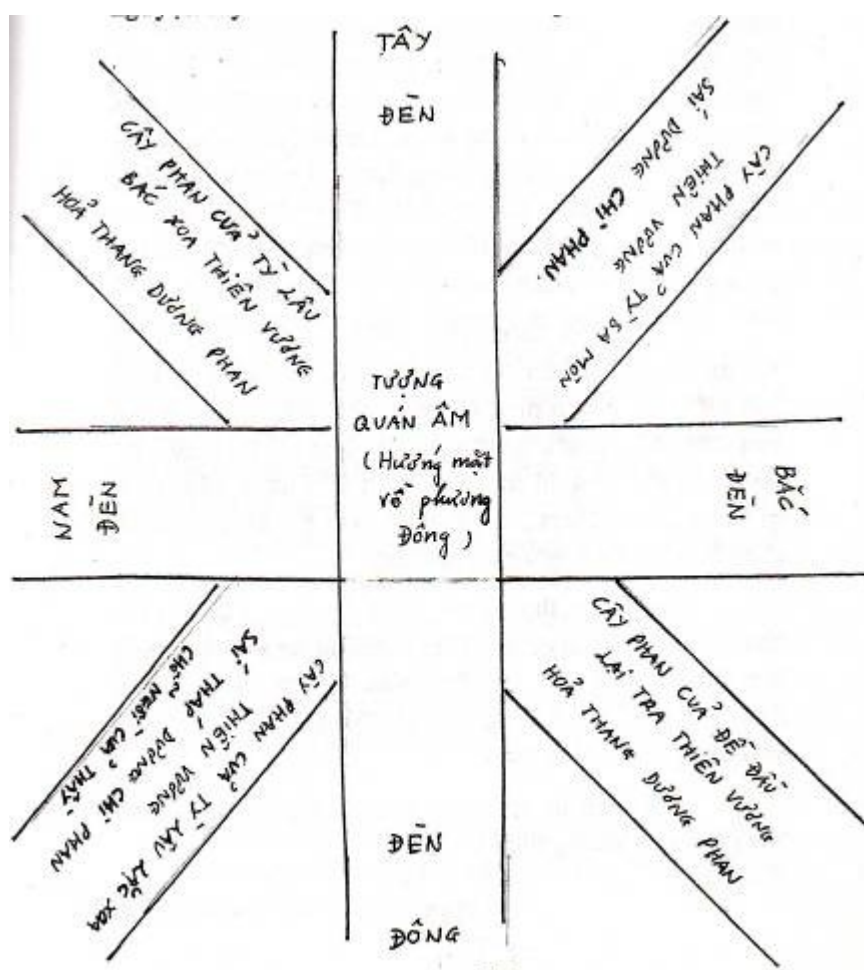 TÂY
ĐÈN
CÂY PHAN CUẢ TỲ LÂU
BÁC XOA THIÊN VƯƠNG
HOẢ THANG DƯƠNG PHAN
CÂY PHAN CUẢ TỲ SA MÔN
THIÊN VƯƠNG
SÁI DƯƠNG CHI PHAN
TƯỢNG
QUÁN ÂM
(Hướng mặt
về phương
Đông)
NAM
ĐÈN
BẮC
ĐÈN
CÂY PHAN CUẢ TỲ LÂU LẶC XOA
THIÊN VƯƠNG
SÁI THÁP DƯƠNG CHI PHAN
CHỖ NGỒI CUẢ THẦY
CÂY PHAN CUẢ ĐỀ ĐẦU
LẠI TRA THIÊN VƯƠNG
HOẢ THANG DƯƠNG PHAN
ĐÈN
ĐÔNG